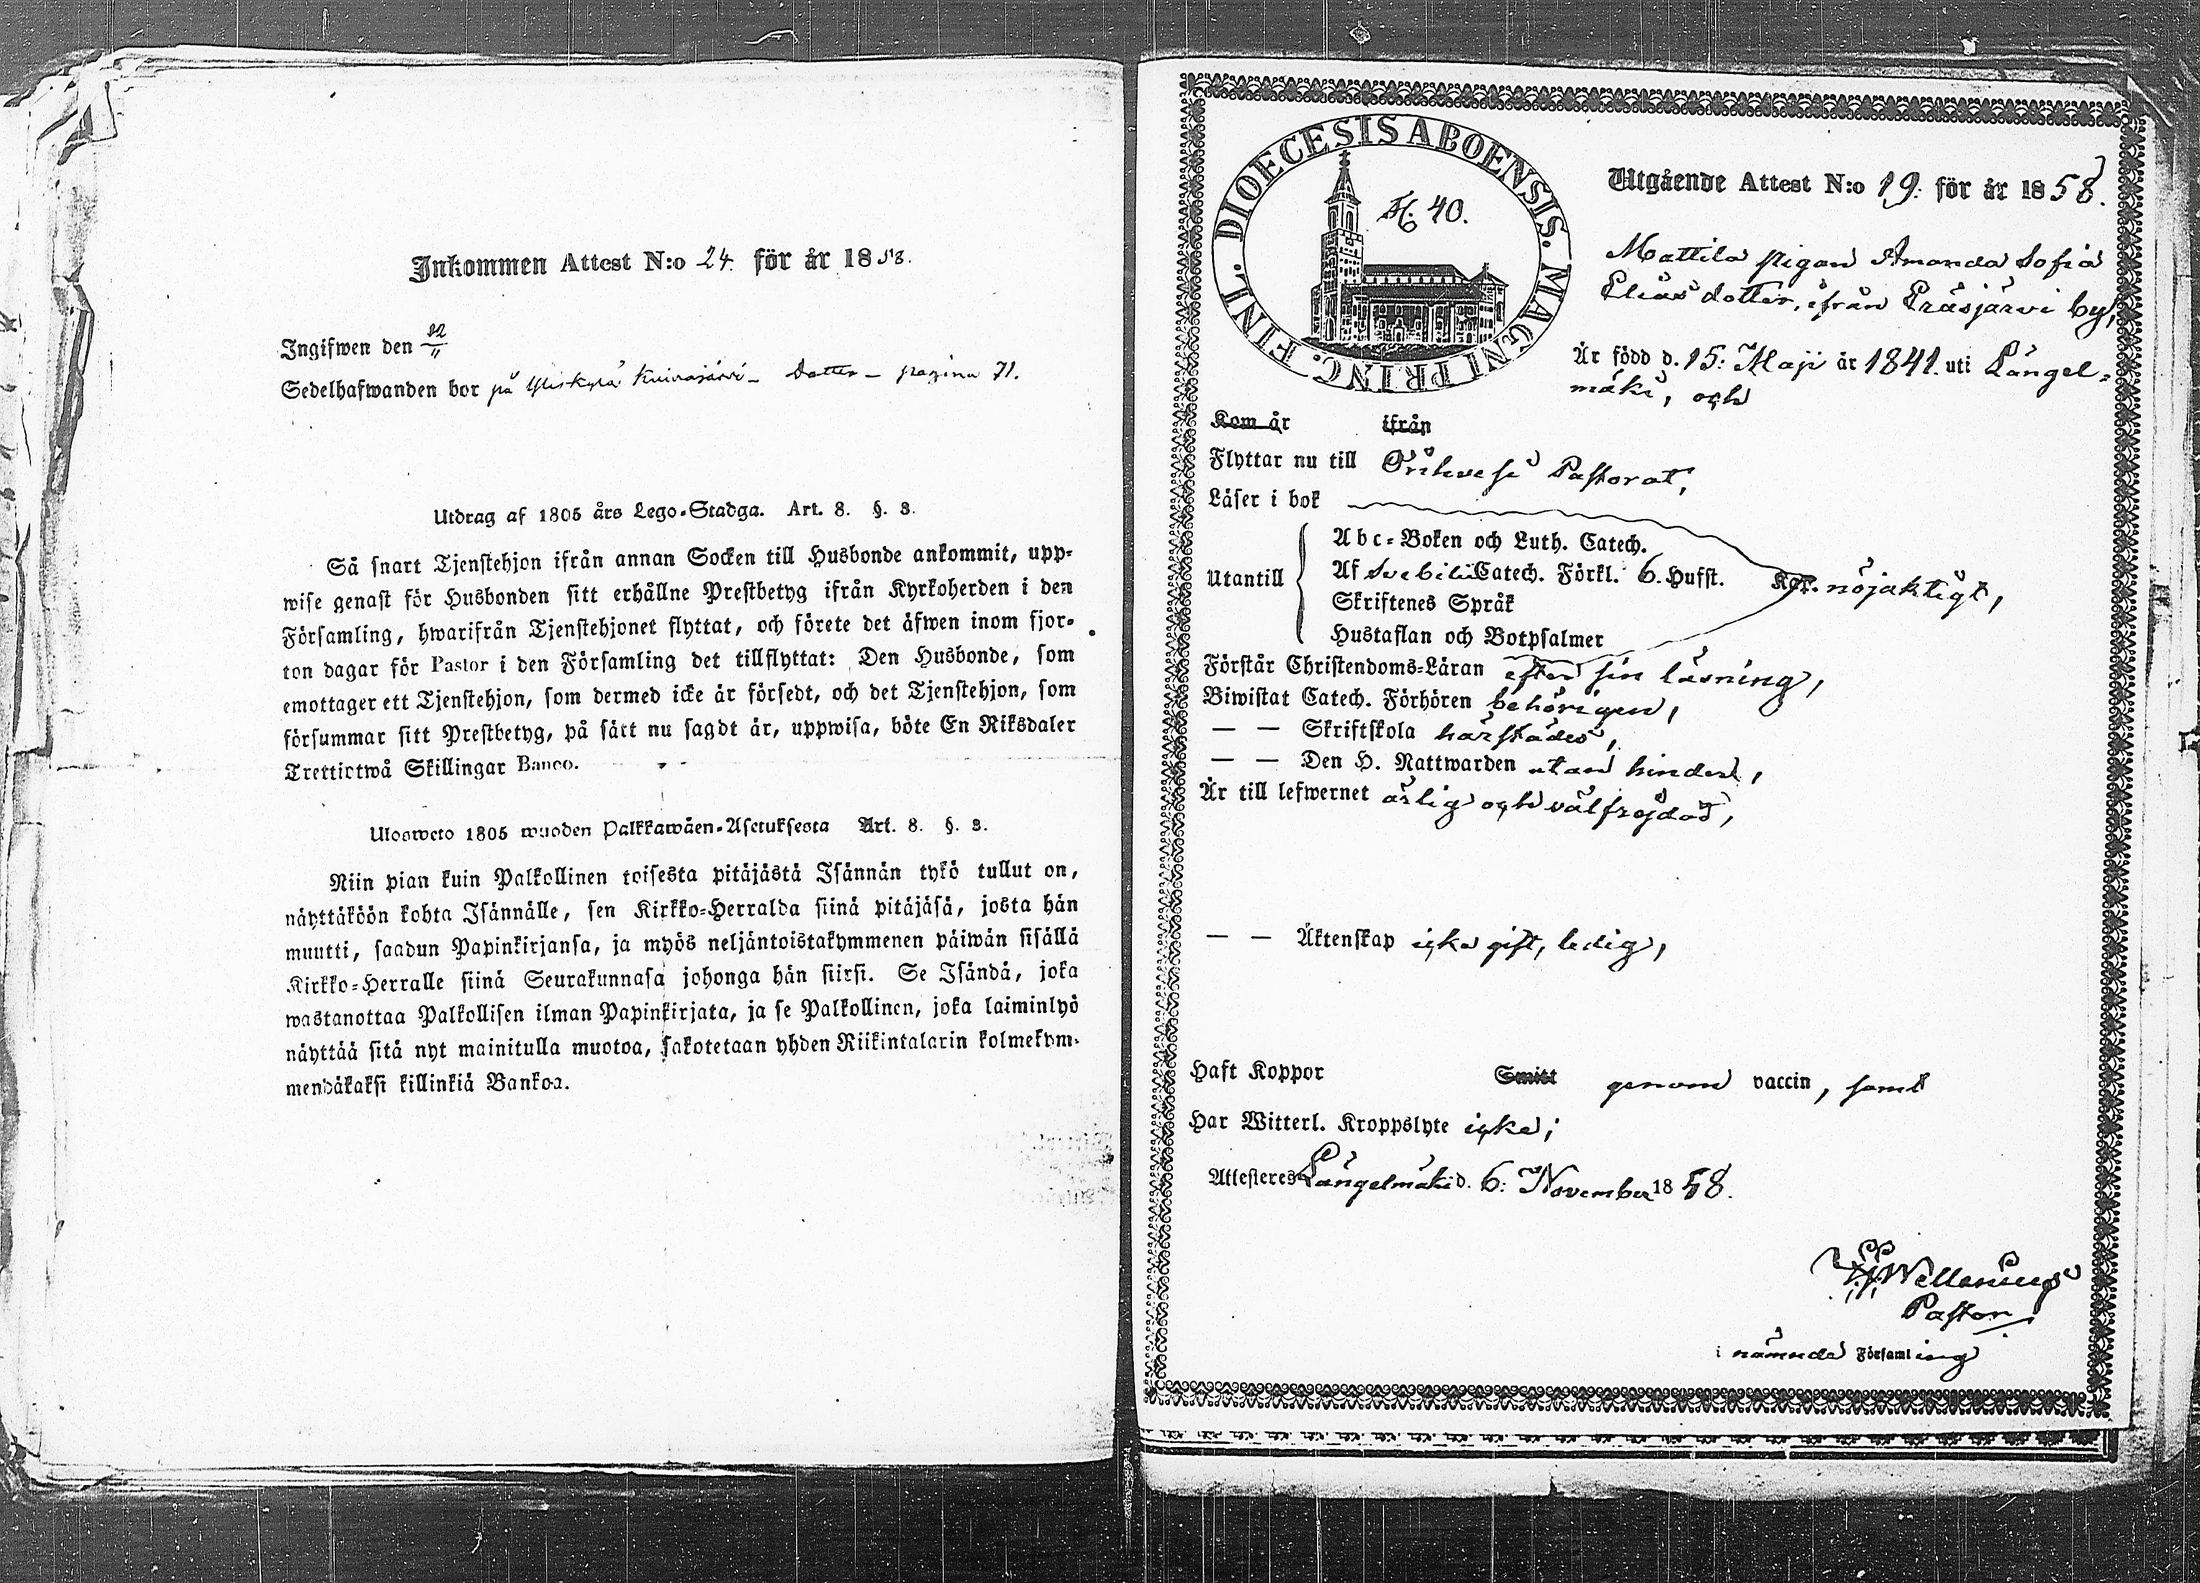 Inkommen Attest N:o 24. för år 1858.
Ingifwen den 22/11
Sedelhafwanden bor på Yliskylä Kuivasjärvi - Dotter - pagina 71.
Utdrag af 1805 års Lego-Stadga. Art. 8. §. 3.
Så snart Tjenstehjon ifrån annan Socken till Husbonde ankommit, upp-
wise genast för Husbonden sitt erhållne Prestbetyg ifrån Kyrkoherden i den
Församling, hwarifrån Tjenstehjonet flyttat, och förete det äfwen inom fjor-
ton dagar för Pastor i den Församling det tillflyttat: Den Husbonde, som
emottager ett Tjenstehjon, som dermed icke är försedt, och det Tjenstehjon, som
försummar sitt Prestbetyg, på sätt nu sagdt är, uppwisa, böte En Riksdaler
Trettiotwå Skillingar Banco.
Ulosweto 1805 wuoden Palkkawäen-Asetuksesta Art. 8. §. 3.
Niin pian kuin Palkollinen toisesta pitäjästä Isännän tykö tullut on,
näyttäköön kohta Isännälle, sen Kirkko-Herralda siinä pitäjäsä, josta hän
muutti, saadun Papinkirjansa, ja myös neljäntoistakymmenen päiwän sisällä
Kirkko-Herralle siinä Seurakunnasa johonga hän siirsi. Se Isändä, joka
wastanottaa Palkollisen ilman Papinkirjata, ja se Palkollinen, joka laiminlyö
näyttää sitä nyt mainitulla muotoa, sakotetaan yhden Riikintalarin kolmekym-
mendäkaksi killinkiä Bankoa.
DIOECESIS ABOENSIS. MAGNI PRINC. FINL.
40.
Utgående Attest N:o 19. för år 1858.
Mattila pigan Amanda Sofia
Eliasdotter, ifrån Eräsjärvi by,
Är född d. 15: Maji år 1841. uti Längel-
mäki, och
Kom år ifrån
Flyttar nu till Orihvesi Pastorat,
Läser i bok
Utantill
Abc-Boken och Luth. Catech.
Af Svebilii Catech. Förkl. 6. Hufst. nöjaktigt,
Skriftenes Språk
Hustaflan och Botpsalmer
Förstår Christendoms-Läran efter sin läsning,
Biwistat Catech. Förhören behörigen,
— — Skriftskola härstädes,
— — Den H. Nattwarden utan hinder,
Är till lefwernet ärlig och välfrejdad,
— — Äktenskap icke gift, ledig,
Haft Koppor Smitt genom vaccin, samt
Har Witterl. Kroppslyte icke;
Attesteres Längelmäki d. 6: November 1858.
Pastor
i nämnda Församling